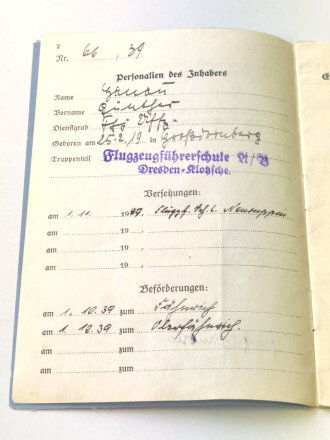 2
Nr. 66, 39
Personalien des Inhabers
Name
Vorname Günther
Dienstgrad
Geboren am 25.2.19 in
Truppenteil Flugzeugführerschule A/B
Dresden-Klotzsche.
Versetzungen:
am 1.11. 1939, Flugzf. Sch. C. Neuruppin
am 19 ,
am 19 ,
am 19 ,
Beförderungen:
am 1. 10. 39 zum Fähnrich
am 1. 12. 39 zum Oberfähnrich.
am zum
am zum